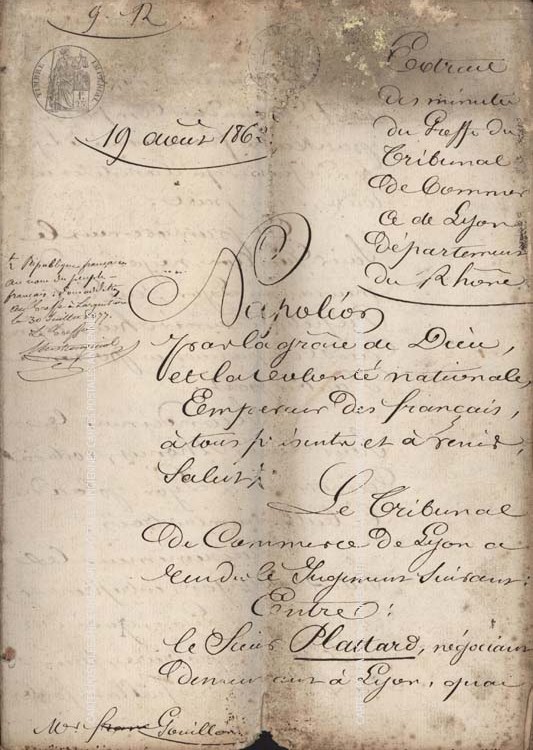 9 - 12
TIMBRE IMPÉRIAL
Extrait
des minutes
du Greffe du
Tribunal
de Commer
ce de Lyon
Département
du Rhône
19 août 186
République française
au nom du peuple
français
le 30 Juillet 1877.
Le Greffier
Napoléon
par la grâce de Dieu,
et la volonté nationale,
Empereur des français,
à tous présents et à venir,
Salut;
Le Tribunal
de Commerce de Lyon a
rendu le Jugement Suivant:
Entre:
le Sieur Plattard, négociant
demeurant à Lyon, quai
Gouillon